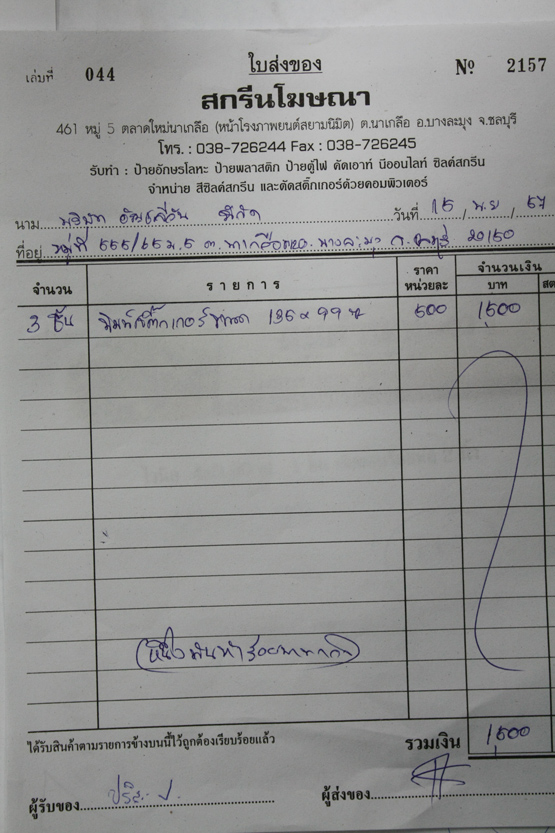 ใบส่งของ
เล่มที่ 044 Nº 2157
สกรีนโฆษณา
461 หมู่ 5 ตลาดใหม่นาเกลือ (หน้าโรงภาพยนต์สยามนิมิต) ต.นาเกลือ อ.บางละมุง จ.ชลบุรี
โทร. : 038-726244 Fax : 038-726245
รับทำ : ป้ายอักษรโลหะ ป้ายพลาสติก ป้ายตู้ไฟ คัตเอาท์ นีออนไลท์ ซิลค์สกรีน
จำหน่าย สีซิลค์สกรีน และตัดสติ๊กเกอร์ด้วยคอมพิวเตอร์
นาม บริษัท จำกัด วันที่ 15 / พ.ย / 57
ที่อยู่ 555/65 ม.5 ต.นาเกลือ อ.บางละมุง จ.ชลบุรี 20150
จำนวน รายการ ราคา หน่วยละ จำนวนเงิน บาท สต
3 ชิ้น พิมพ์สติ๊กเกอร์ขนาด 136 x 99 500 1,500
(หนึ่งพันห้าร้อยบาทถ้วน)
ได้รับสินค้าตามรายการข้างบนนี้ไว้ถูกต้องเรียบร้อยแล้ว รวมเงิน 1,500
ผู้รับของ ผู้ส่งของ